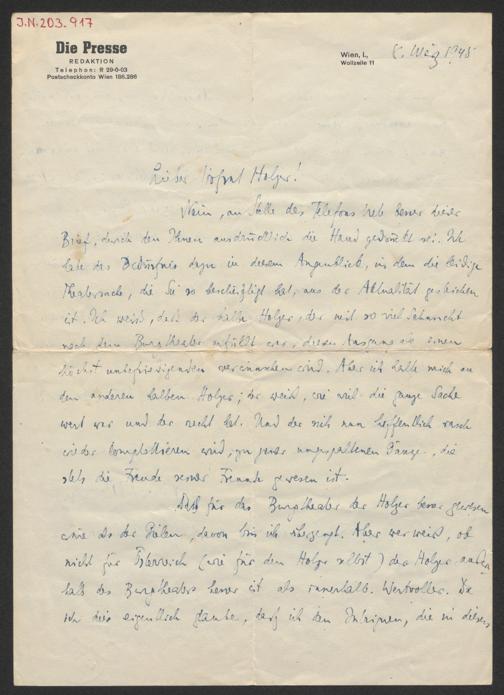 J.N. 203.917
Die Presse
REDAKTION
Telephon: R 29-0-03
Postscheckkonto Wien 186.286
Wien, I.,
Wollzeile 11
8. März 1948
Lieber Hofrat Holzer!
Nein, an Stelle des Telefons lieber dieser
Brief, durch den Ihnen ausdrücklich die Hand gedrückt sei. Ich
habe das Bedürfnis dazu in diesem Augenblick, in dem die leidige
Theatersache, die Sie so beschäftigt hat, aus der Aktualität gewichen
ist. Ich weiß, daß der halbe Holzer, der mit so viel Sehnsucht
nach dem Burgtheater erfüllt war, diesen Ausgang als einen
höchst unbefriedigenden wird. Aber ich halte mich an
den anderen halben Holzer, der weiß, wie viel die ganze Sache
wert war und der recht hat. Und der sich nun hoffentlich rasch
wieder komplettieren wird, zu jener ungespaltenen Gänze, die
stets die Freude seiner Freunde gewesen ist.
Daß für das Burgtheater der Holzer besser gewesen
wäre als der, davon bin ich überzeugt. Aber wer weiß, ob
nicht für Österreich (wie für den Holzer selbst) der Holzer außer-
halb des Burgtheaters besser ist als innerhalb. Wertvoller. Da
ich dies eigentlich glaube, darf ich den Intrigen, die in diesem